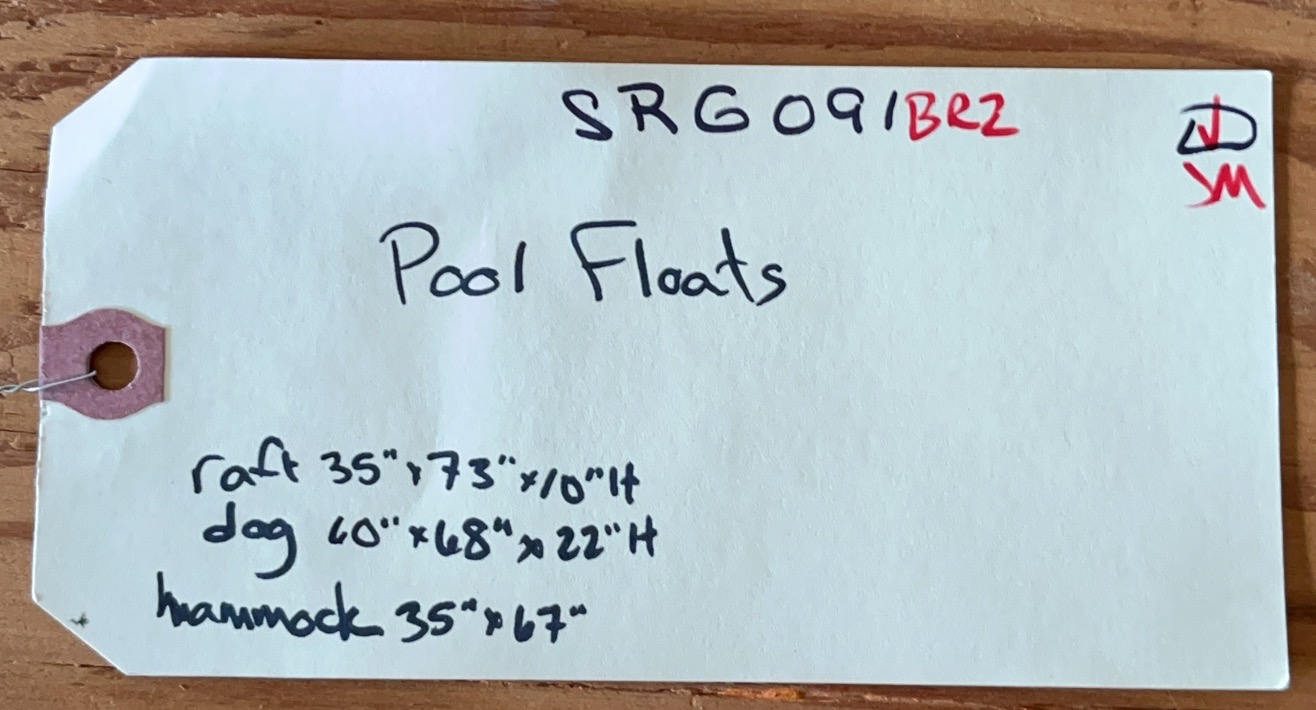 SRG091BRZ
YM
Pool Floats
raft 35" x 73" x 10" H
dog 60" x 68" x 22" H
hammock 35" x 67"